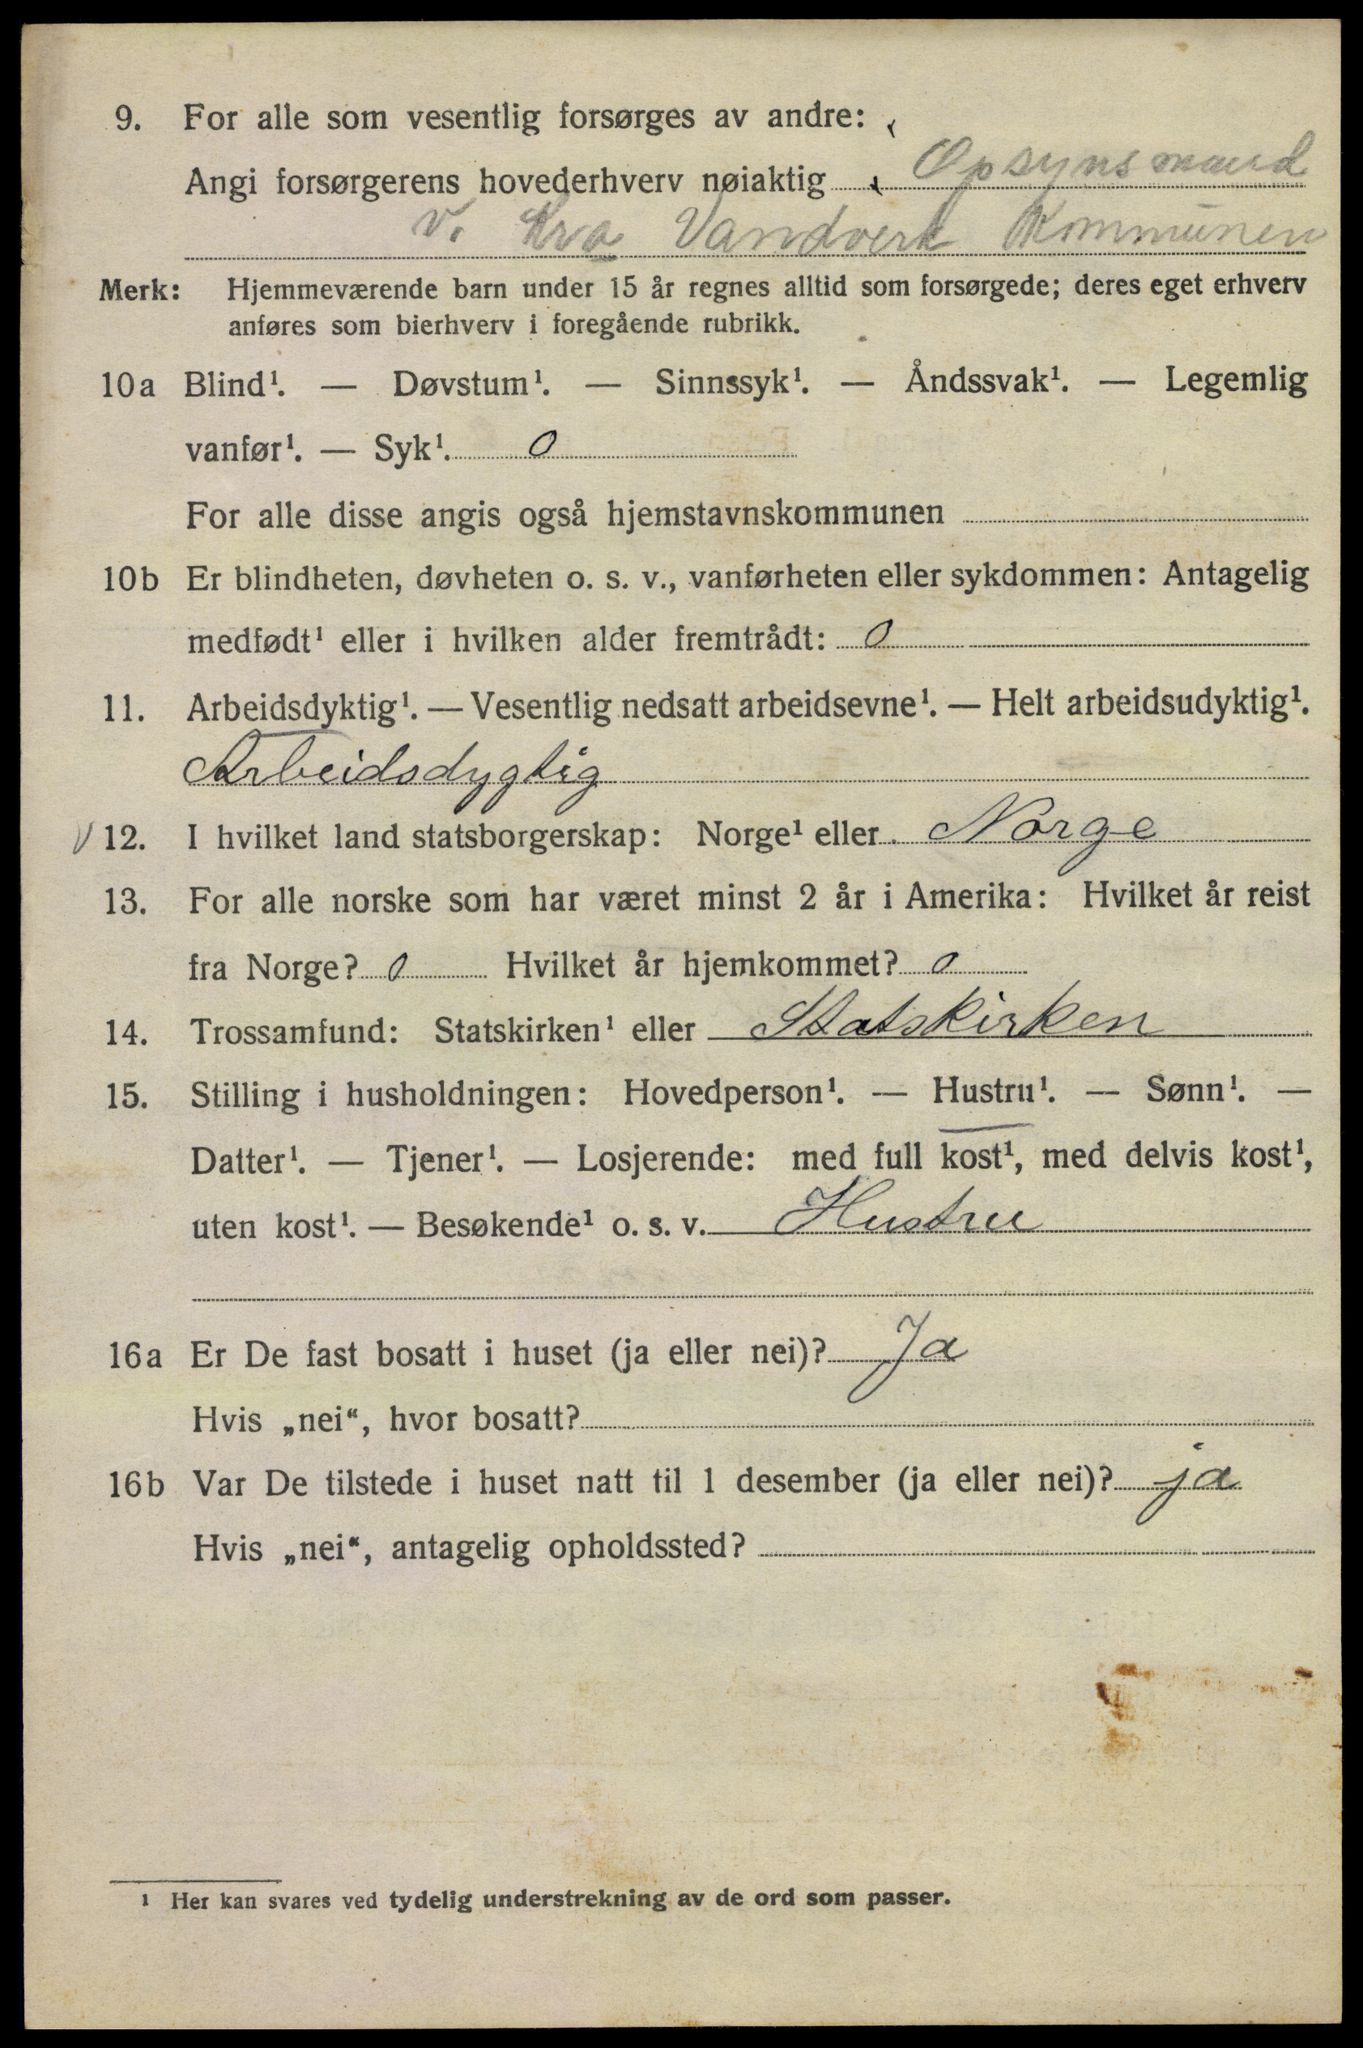 9. For alle som vesentlig forsørges av andre:
Angi forsørgerens hovederhverv nøiaktig Opsynsmand
v. Kra Vandverk Kommunen
Merk: Hjemmeværende barn under 15 år regnes alltid som forsørgede; deres eget erhverv
anføres som bierhverv i foregående rubrikk.
10a Blind¹. — Døvstum¹. — Sinnssyk¹. — Åndssvak¹. — Legemlig
vanfør¹. — Syk¹. 0
For alle disse angis også hjemstavnskommunen
10b Er blindheten, døvheten o. s. v., vanførheten eller sykdommen: Antagelig
medfødt¹ eller i hvilken alder fremtrådt: 0
11. Arbeidsdyktig¹. — Vesentlig nedsatt arbeidsevne¹. — Helt arbeidsudyktig¹.
Arbeidsdygtig
V 12. I hvilket land statsborgerskap: Norge¹ eller Norge
13. For alle norske som har været minst 2 år i Amerika: Hvilket år reist
fra Norge? 0 Hvilket år hjemkommet? 0
14. Trossamfund: Statskirken¹ eller Statskirken
15. Stilling i husholdningen: Hovedperson¹. — Hustru¹. — Sønn¹. —
Datter¹. — Tjener¹. — Losjerende: med full kost¹, med delvis kost¹,
uten kost¹. — Besøkende¹ o. s. v. Hustru
16a Er De fast bosatt i huset (ja eller nei)? Ja
Hvis „nei“, hvor bosatt?
16b Var De tilstede i huset natt til 1 desember (ja eller nei)? ja
Hvis „nei“, antagelig opholdssted?
¹ Her kan svares ved tydelig understrekning av de ord som passer.